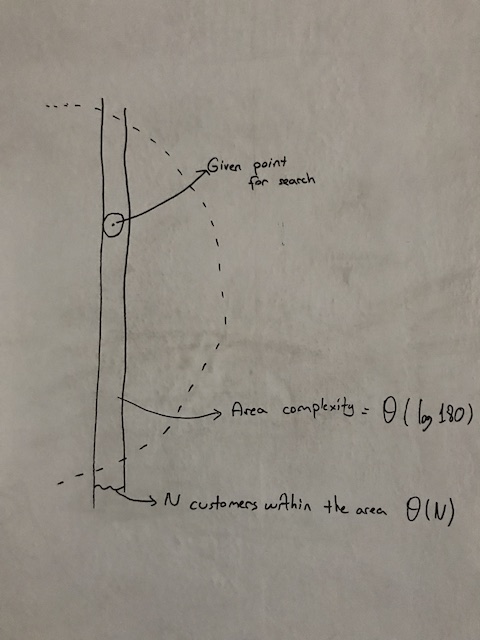 Given point
for search
Area complexity = θ(log 180)
N customers within the area θ(N)